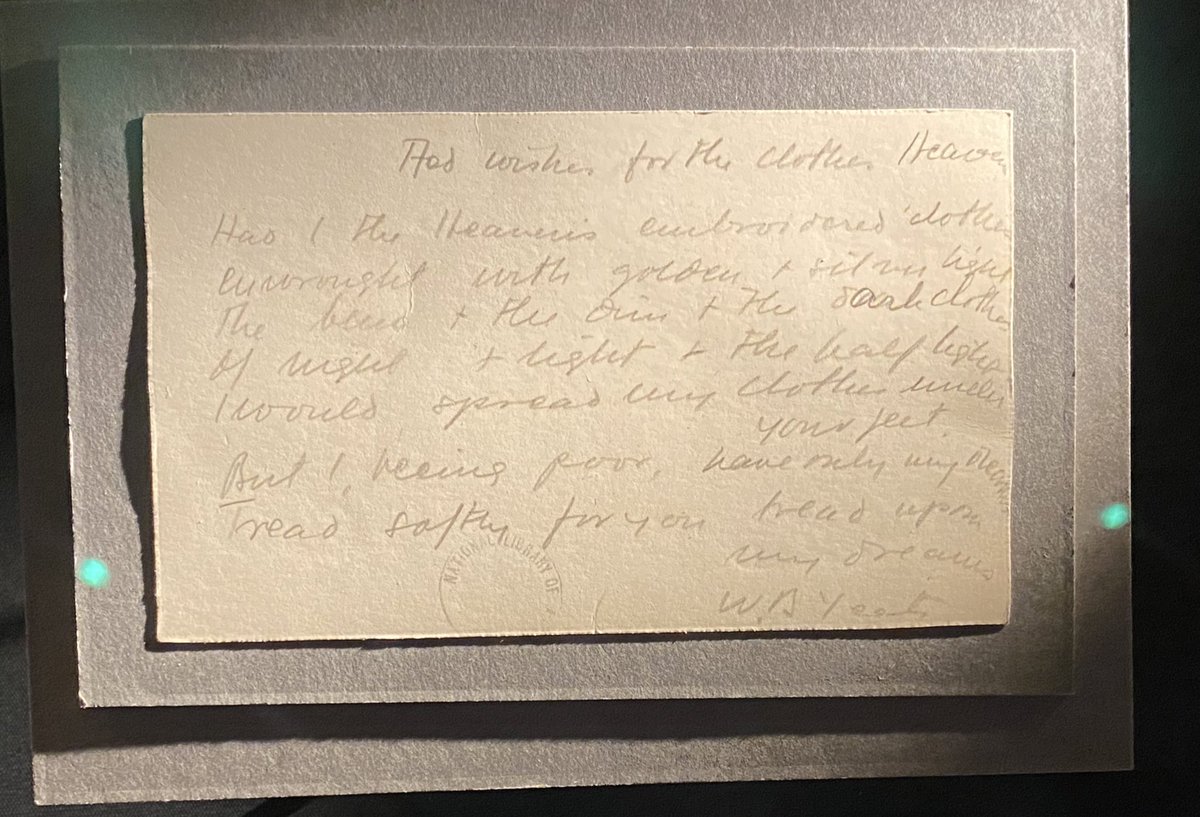 Aad wishes for the clothes Heaven
Had I the Heavens embroidered clothes
enwrought with golden + silver light
The blue + the dim + the dark clothes
Of night + light + the half light
I would spread my clothes under
your feet.
But I, being poor, have only my dreams
Tread softly for you tread upon
my dreams
W.B Yeats
NATIONAL LIBRARY OF